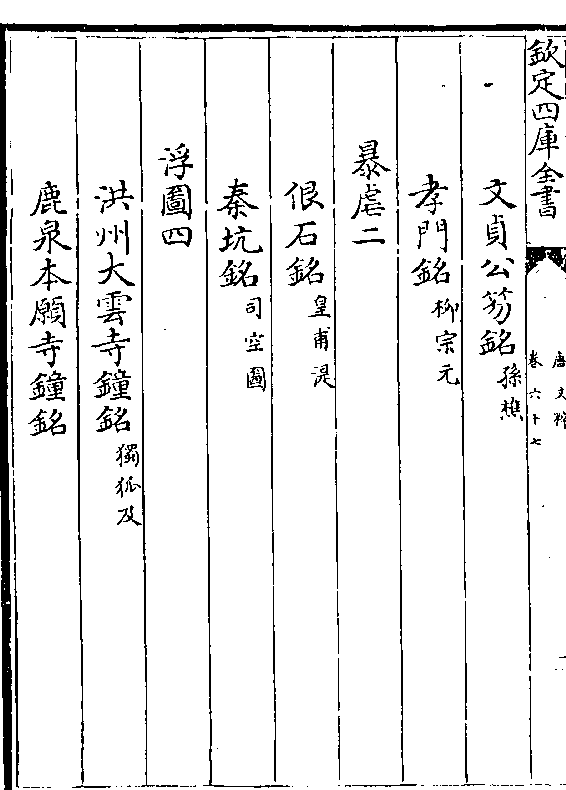 欽定四庫全書
唐文粹
卷六十七
一
文貞公笏銘孫樵
孝門銘柳宗元
暴虐二
佷石銘皇甫湜
秦坑銘司空圖
浮圖四
洪州大雲寺鐘銘獨孤及
鹿泉本願寺鐘銘